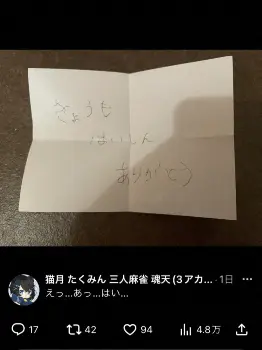 きょうも
はいしん
ありがとう
猫月 たくみん 三人麻雀 魂天 (3アカ... · 1日
えっ...あっ...はい...
17
42
94
4.8万